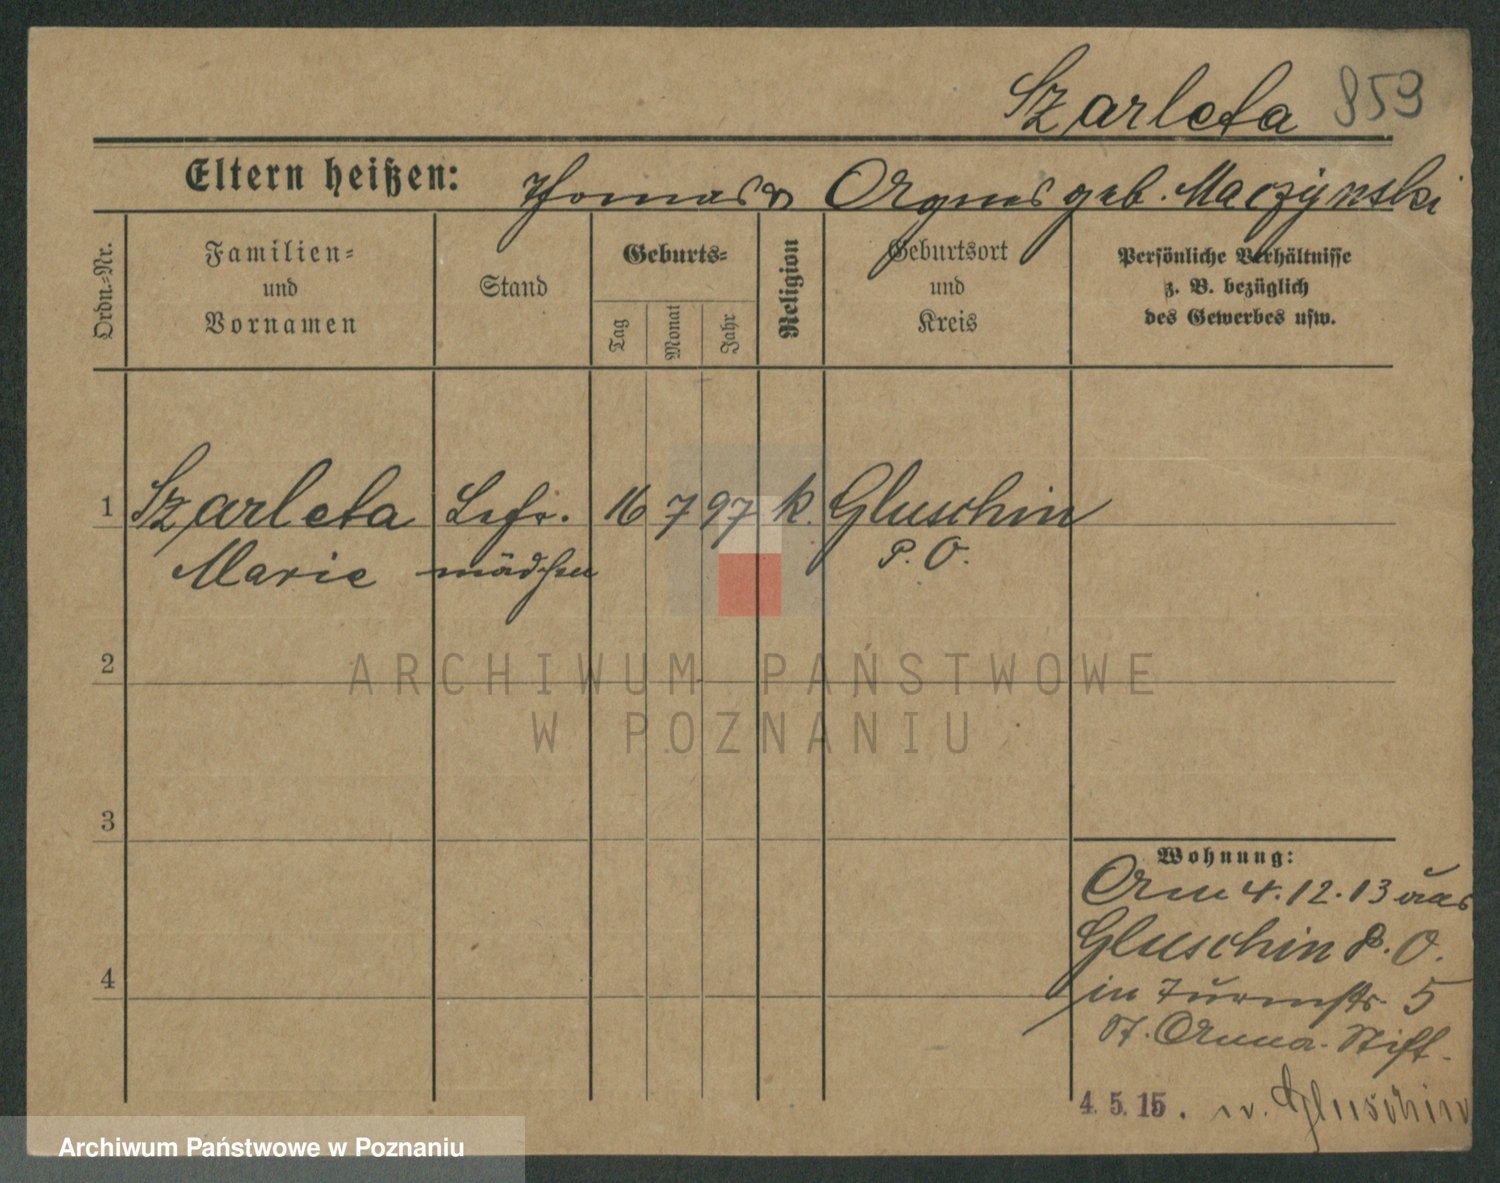 Szarleta 859
Eltern heißen: Thomas u Agnes geb. Maczynski
Ordn.=Nr.
Familien=
und
Vornamen
Stand
Geburts=
Tag
Monat
Jahr
Religion
Geburtsort
und
Kreis
Persönliche Verhältnisse
z. B. bezüglich
des Gewerbes usw.
1 Szarleta Lehr. 16 7 97 k. Gluschin
Marie mädchen P. O.
2
ARCHIWUM PAŃSTWOWE
W POZNANIU
3
Wohnung:
Am 4.12.13 aus
Gluschin P. O.
4
in Turmstr. 5
St. Anna-Stift.
4. 5. 15. n. Gluschin
Archiwum Państwowe w Poznaniu